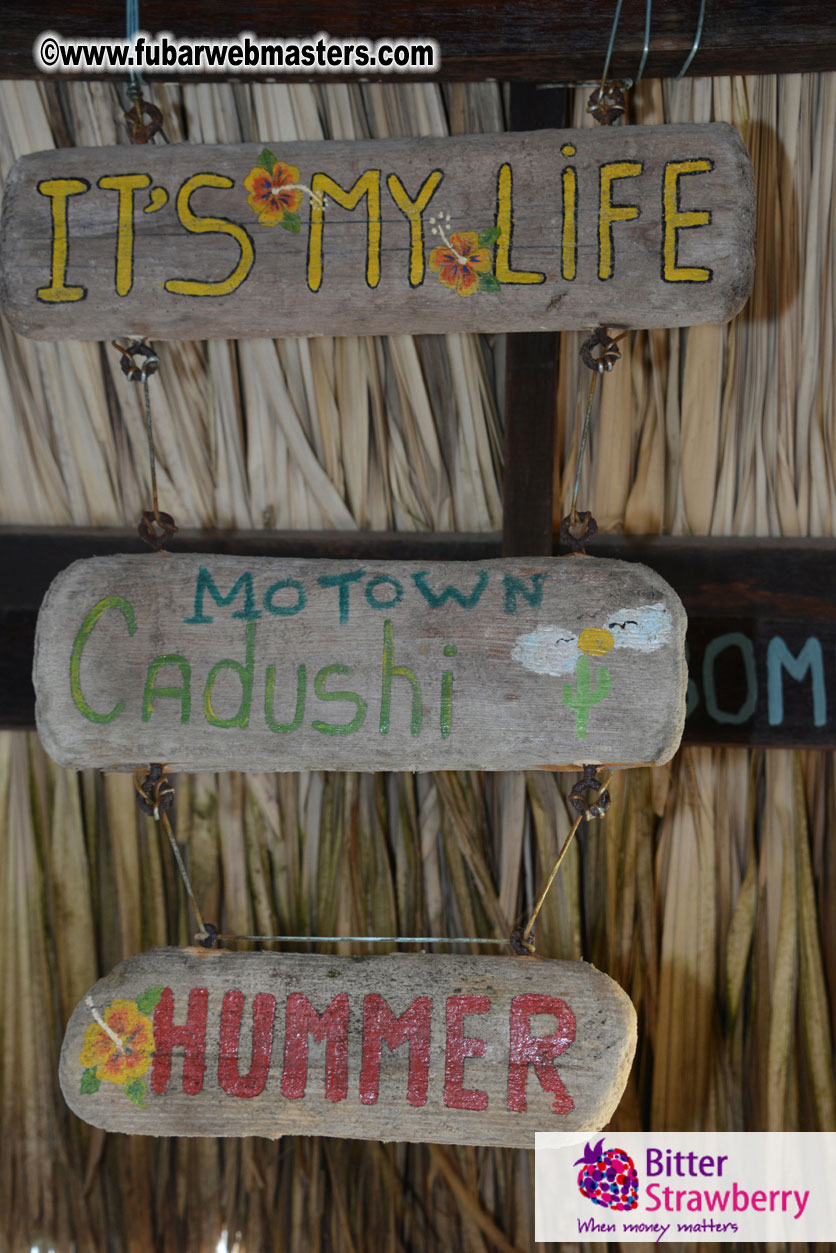 ©www.fubarwebmasters.com
IT'S MY LiFE
MOTOWN
Cadushi
OM
HUMMER
Bitter
Strawberry
When money matters